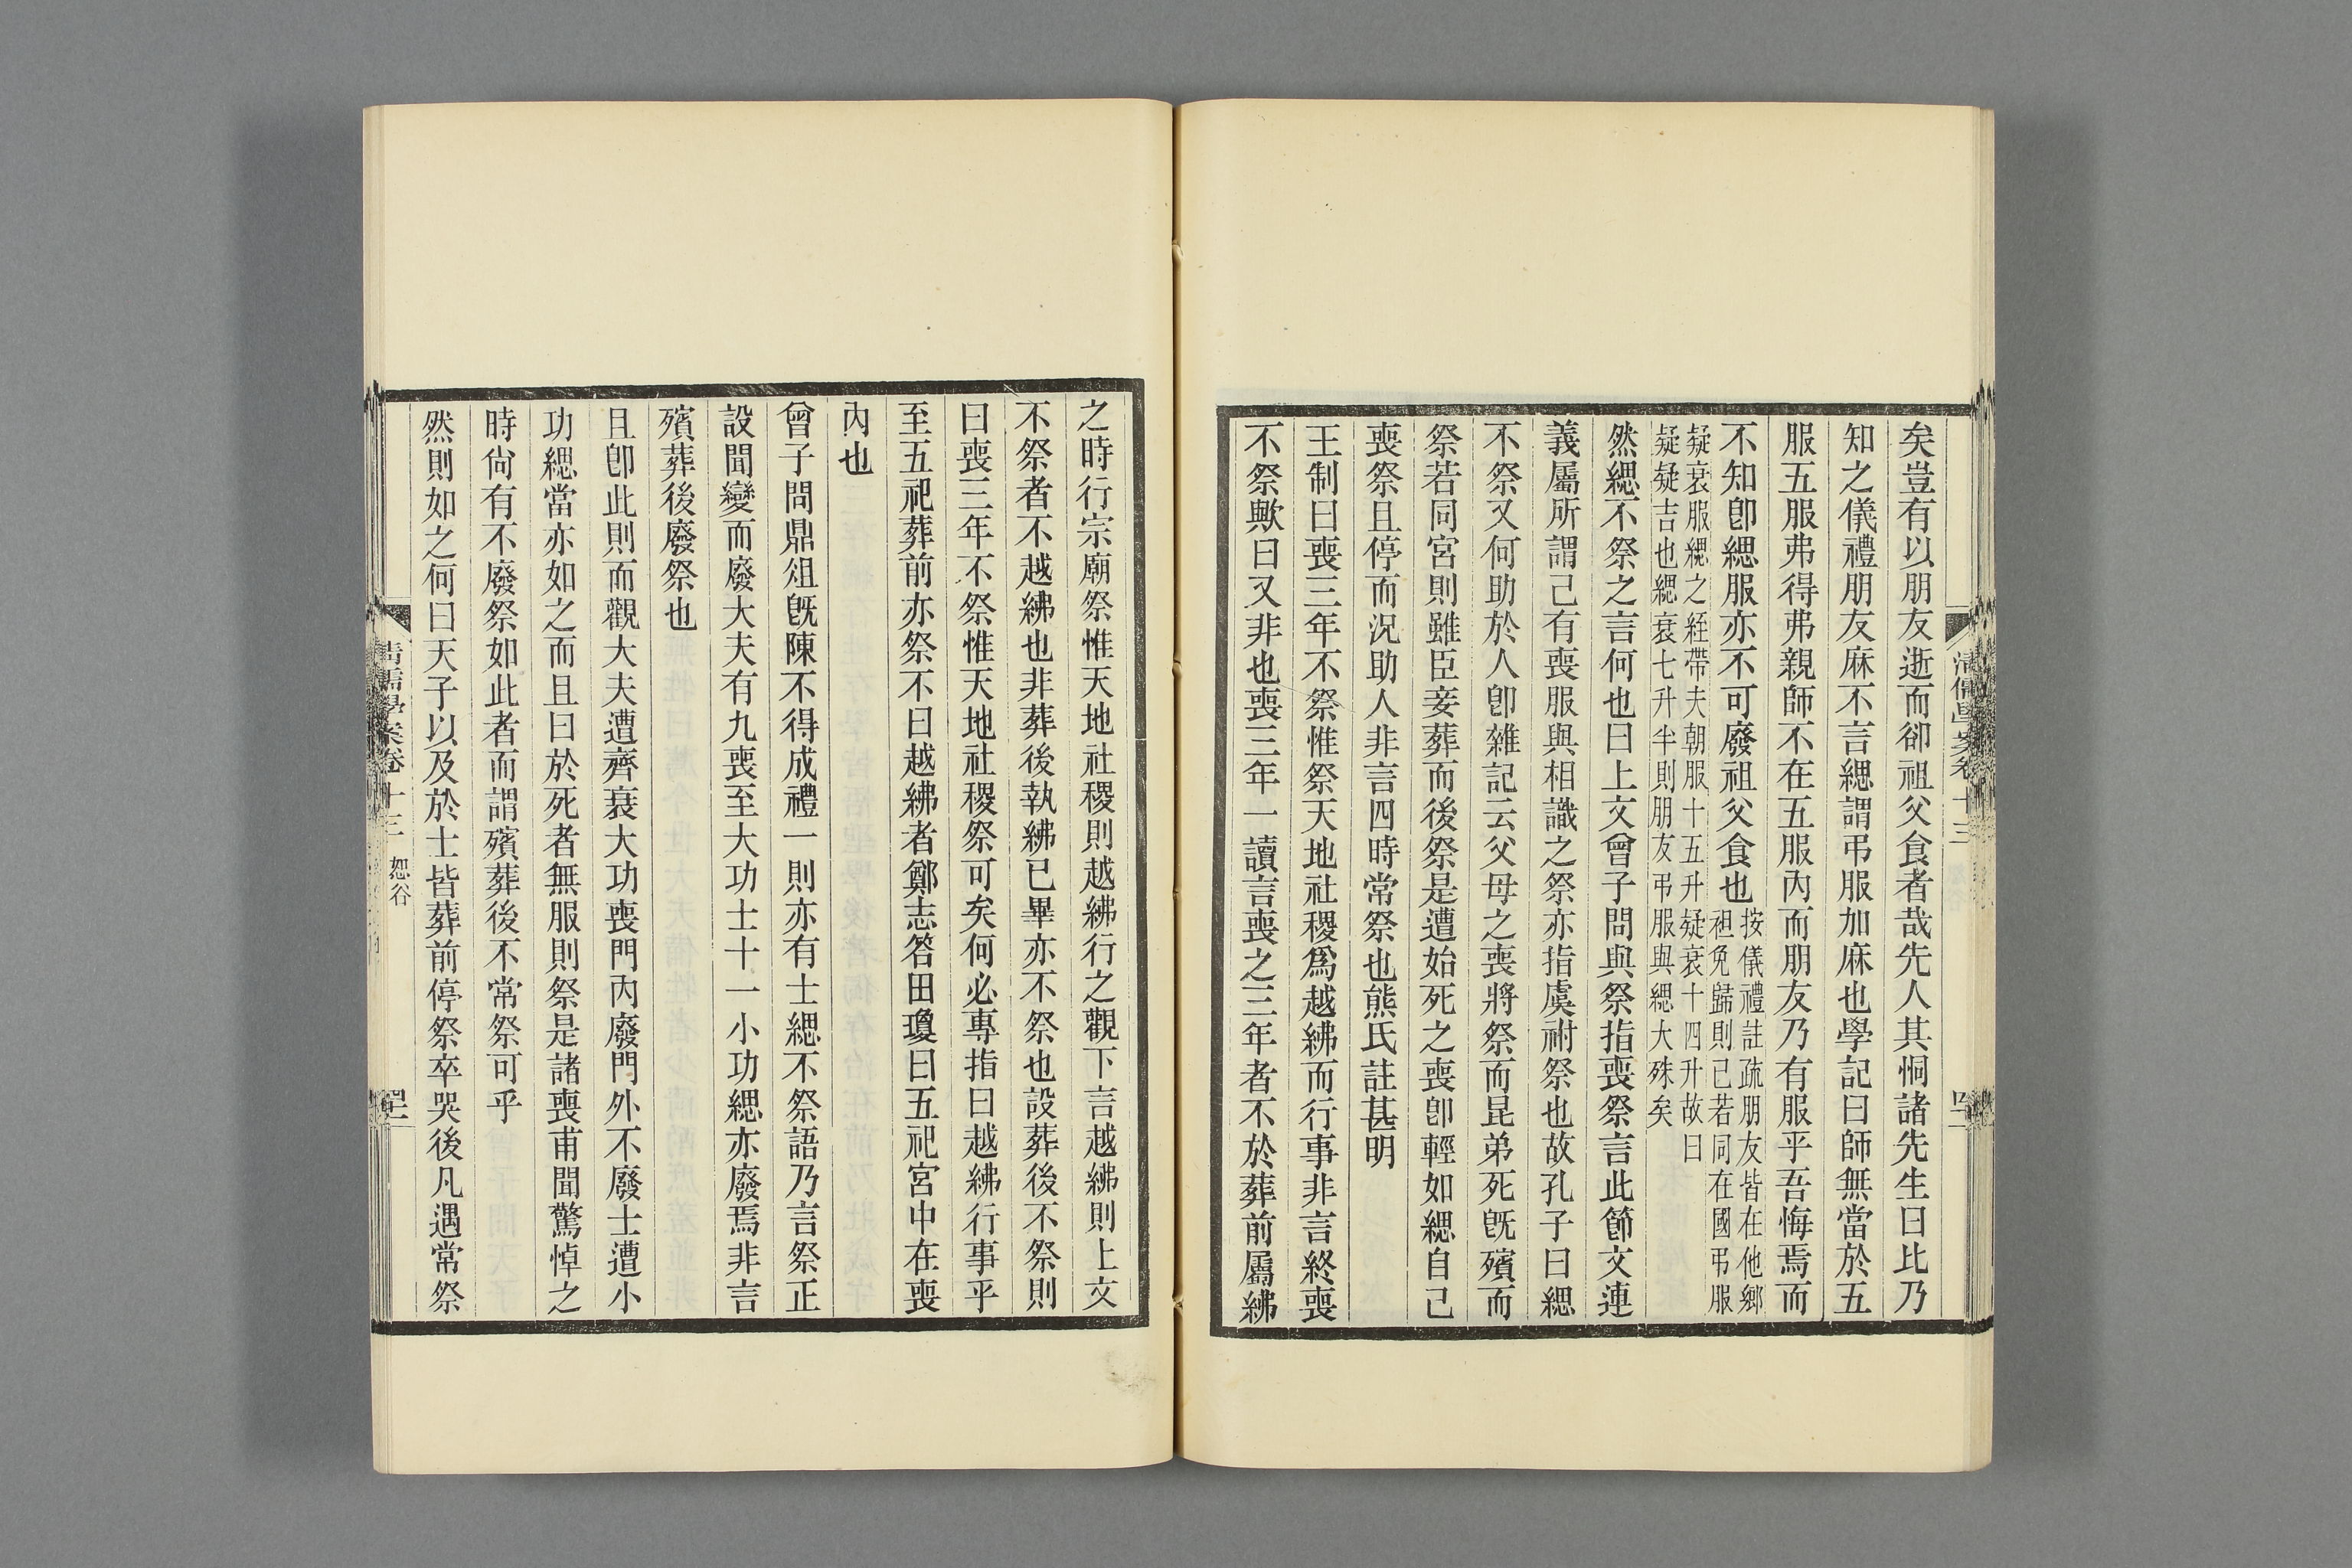 矣豈有以朋友逝而卻祖父食者哉先人其恫諸先生曰比乃
知之儀禮朋友麻不言緦謂弔服加麻也學記曰師無當於五
服五服弗得弗親師不在五服內而朋友乃有服乎吾悔焉而
不知卽緦服亦不可廢祖父食也
按儀禮註疏朋友皆在他鄉
袒免歸則已若同在國弔服
疑衰服緦之絰帶夫朝服十五升疑衰十四升故曰
疑疑吉也緦衰七升半則朋友弔服與緦大殊矣
然緦不祭之言何也曰上文曾子問與祭指喪祭言此節文連
義屬所謂己有喪服與相識之祭亦指虞祔祭也故孔子曰緦
不祭又何助於人卽雜記云父母之喪將祭而昆弟死旣殯而
祭若同宮則雖臣妾葬而後祭是遭始死之喪卽輕如緦自己
喪祭且停而況助人非言四時常祭也熊氏註甚明
王制曰喪三年不祭惟祭天地社稷爲越紼而行事非言終喪
不祭歟曰又非也喪三年一讀言喪之三年者不於葬前屬紼
清儒學案卷十三
之時行宗廟祭惟天地社稷則越紼行之觀下言越紼則上文
不祭者不越紼也非葬後執紼已畢亦不祭也設葬後不祭則
曰喪三年不祭惟天地社稷祭可矣何必專指曰越紼行事乎
至五祀葬前亦祭不曰越紼者鄭志答田瓊曰五祀宮中在喪
內也
曾子問鼎俎旣陳不得成禮一則亦有士緦不祭語乃言祭正
設聞變而廢大夫有九喪至大功士十一小功緦亦廢焉非言
殯葬後廢祭也
且卽此則而觀大夫遭齊衰大功喪門內廢門外不廢士遭小
功緦當亦如之而且曰於死者無服則祭是諸喪甫聞驚悼之
時尙有不廢祭如此者而謂殯葬後不常祭可乎
然則如之何曰天子以及於士皆葬前停祭卒哭後凡遇常祭
清儒學案卷十三 恕谷